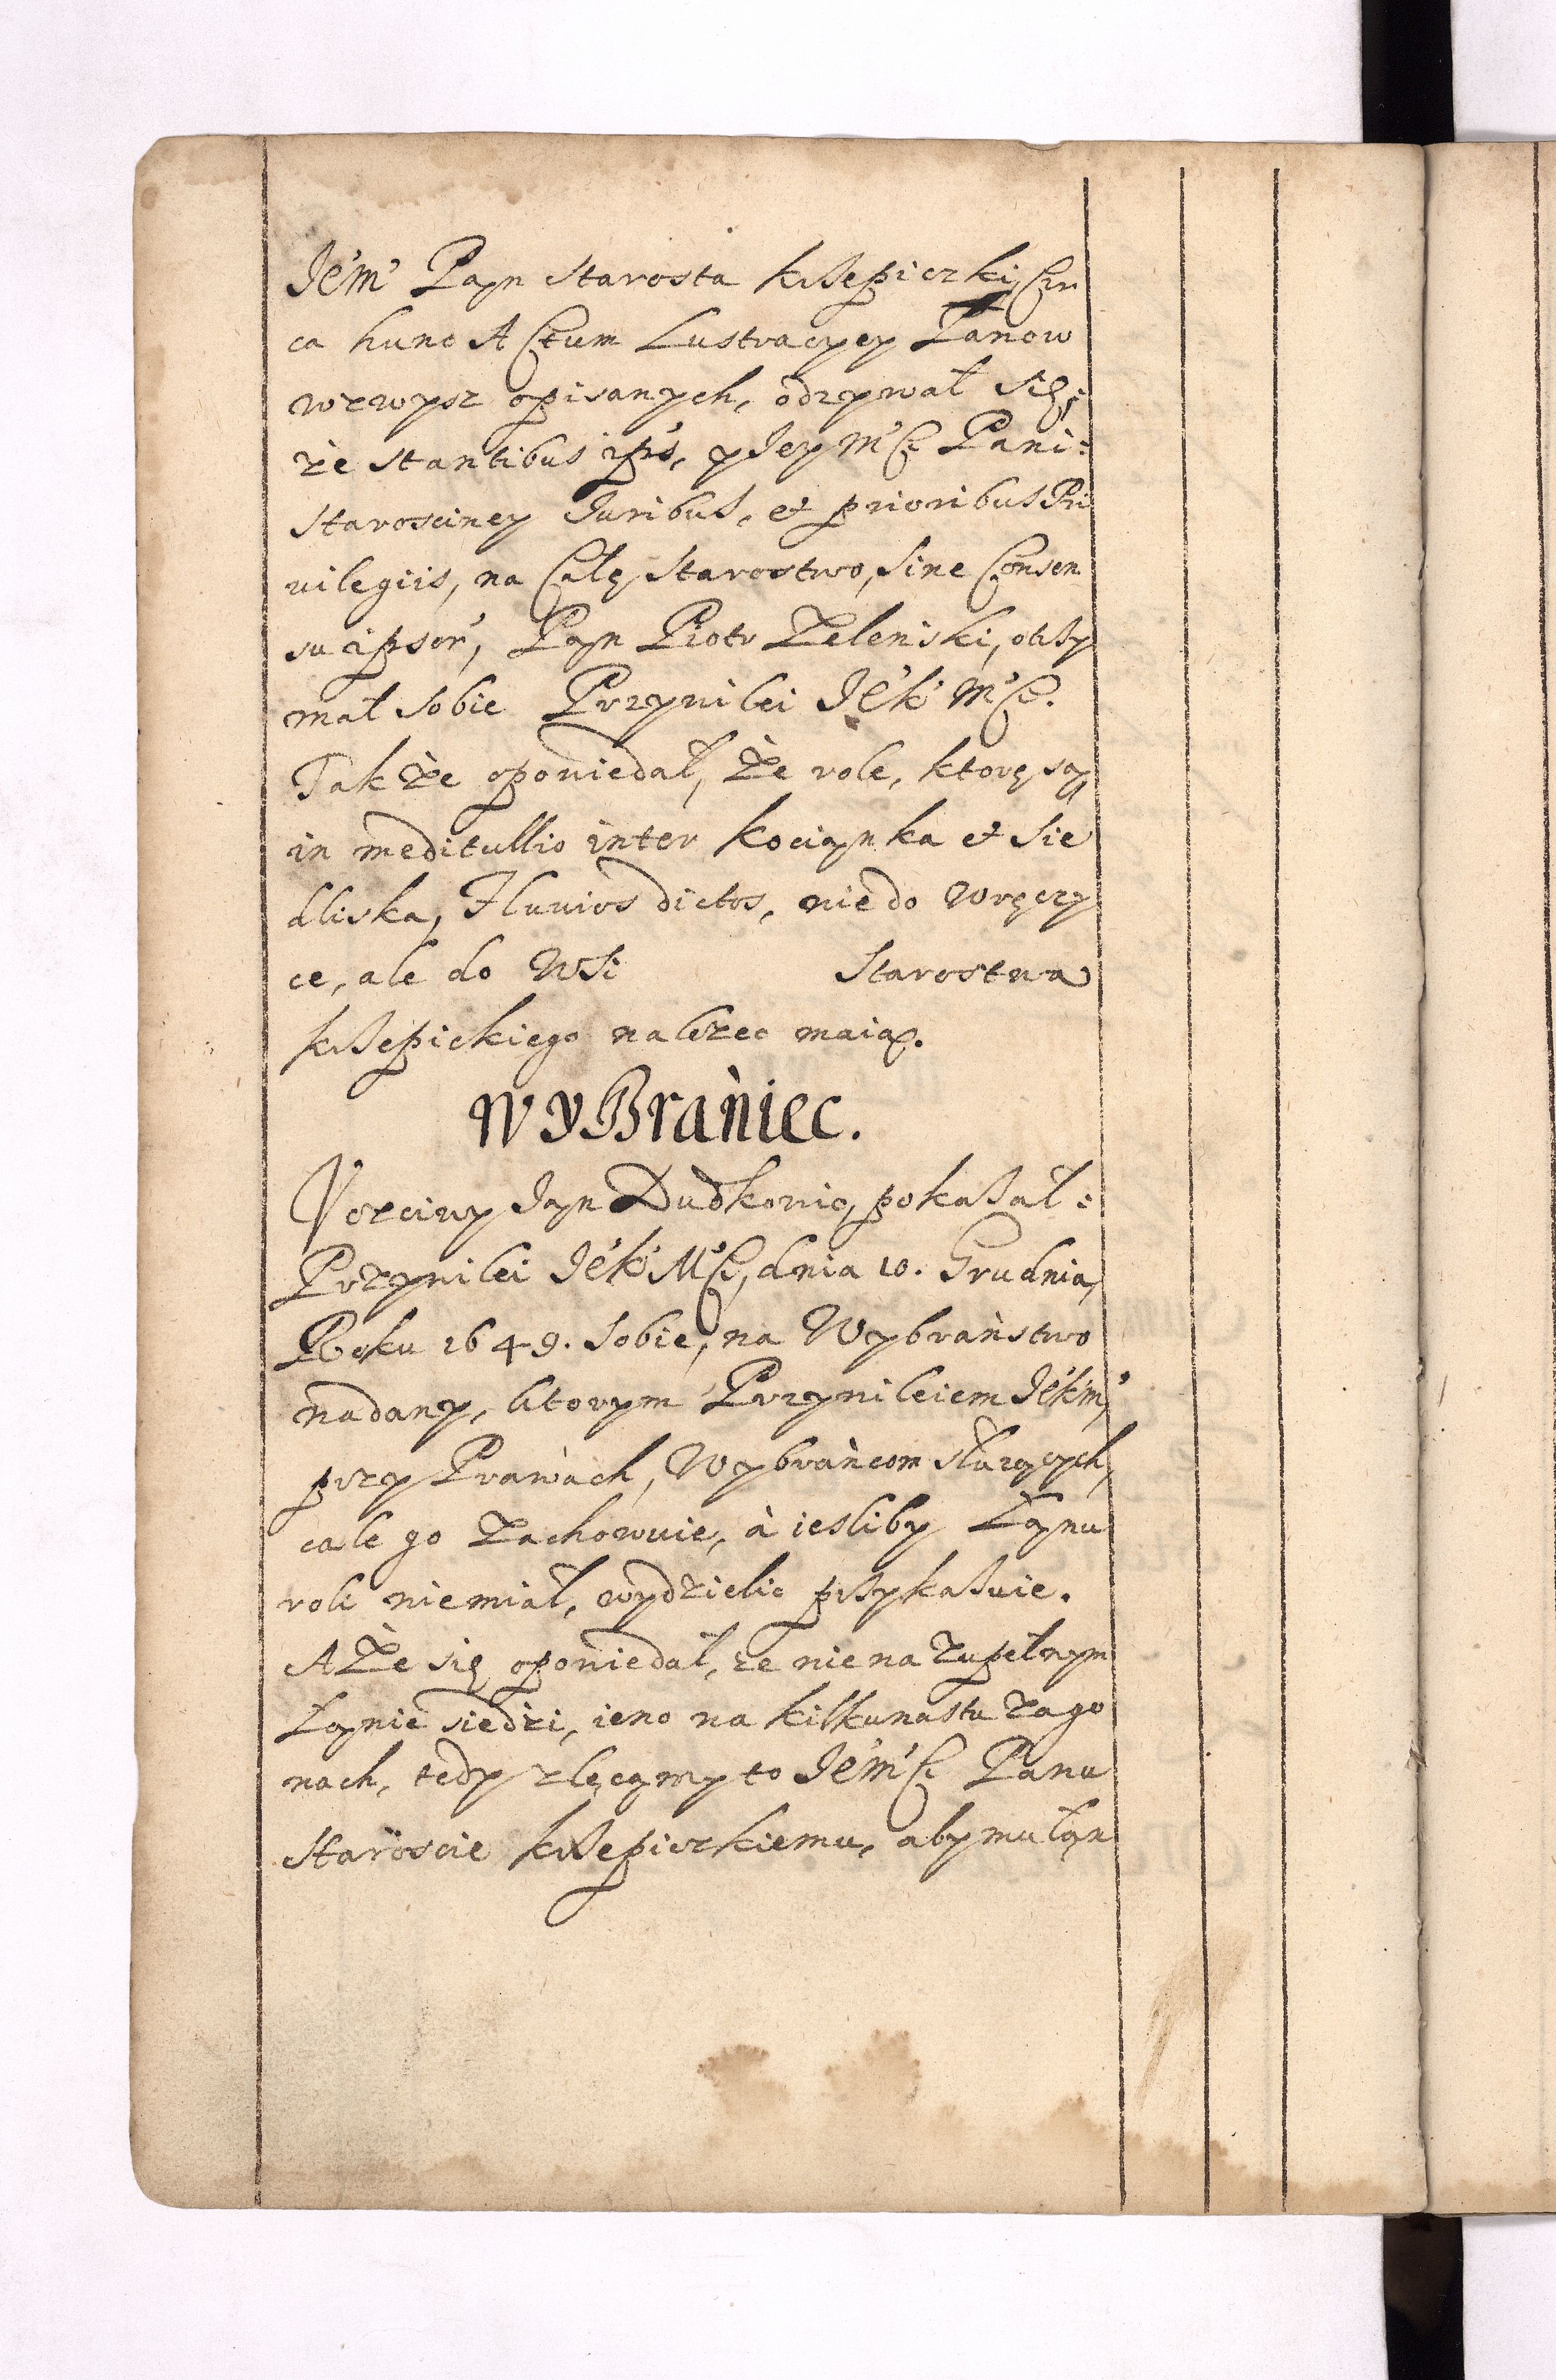 Je'm' Pan Starosta krzepiczki, Cir
ca hunc Actum Lustracyey Łanow
wzwysz opisanych, odzywał się,
że stantibus ip's, y Jey M'ści Pani
Starosciney Juribus, et prioribus Pri
uilegiis, na Całę Starostwo, sine Consen
su ipsor', Pan Piotr Zelenski, otrzy
mał sobie Przywilei Je'k' M'ści.
Także opowiedał, że role, ktorę są,
in meditullio inter kocianka et Sie
dliska, Fluuios dictos, nie do Wręczy
ce, ale do Wsi Starostwa
krzepickiego nalezec maią.
WyBraniec.
Vczciwy Jan Dudkowic, pokazał
Przywilei Je'k' M'ści, dnia 10. Grudnia,
Roku 1649. sobie, na Wybraństwo
nadany, ktorym Przywileiem Je'k'm',
przy Prawach, Wybrańcom służących,
cale go zachowuie, à iesliby Łanu
roli niemiał, wydzielic przykazuie.
A że się opowiedał, ze nie na zupełnym
Łanie siedzi, ieno na kilkunastu zago
nach, tedy zlęcamy to Je'm'ści Panu
Staroscie krzepiczkiemu, aby mu łan